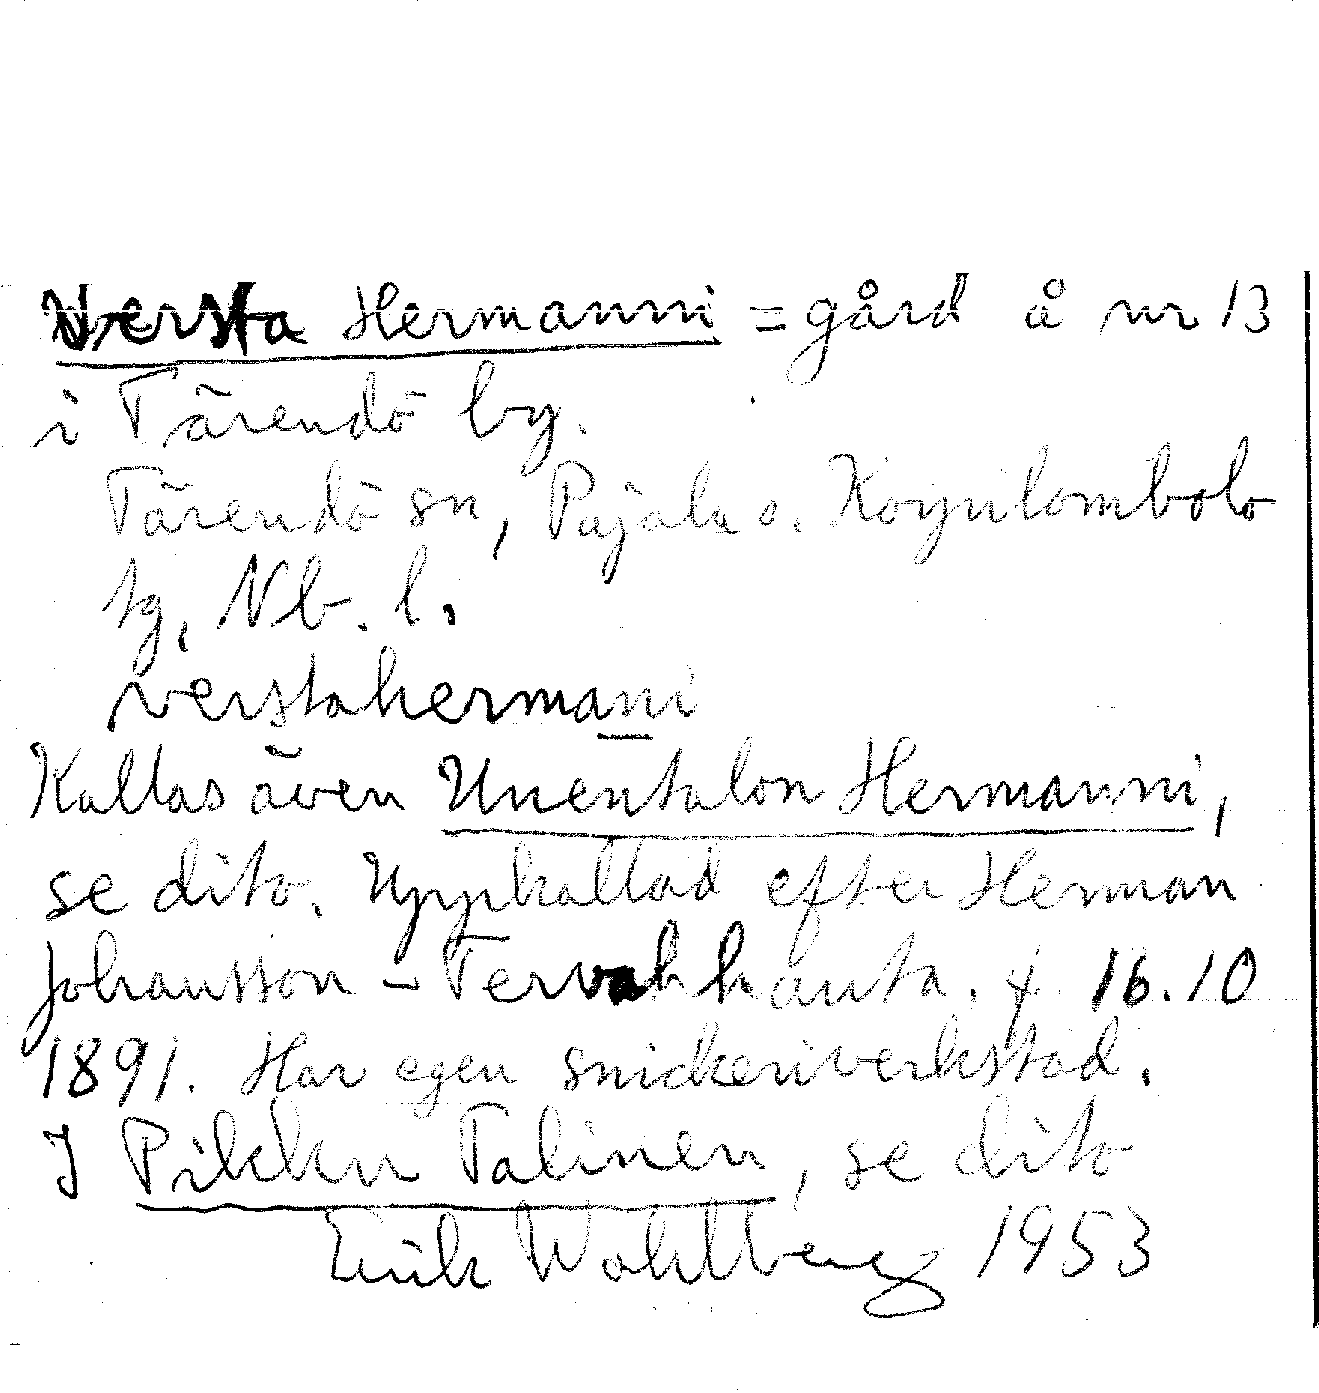 Versta Hermanni = gård å nr 13
i Tärendö by.
Tärendö sn, Pajala o. Korpilombolo
tg, Nb. l.
verstahermani
Kallas även Unentalon Hermanni,
se dito. Uppkallad efter Herman
Johansson - Tervahauta. f. 16.10
1891. Har egen snickeriverkstad.
I Pikku Talinen, se dito
Erik Wahlberg 1953